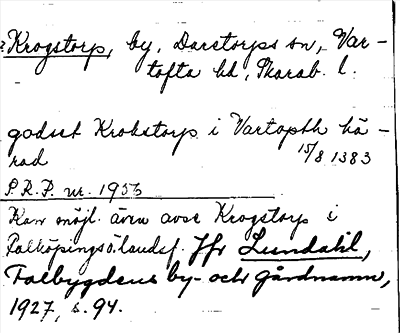 ? Krogstorp, by, Darstorps sn, Var-
tofta hd, Skarab. l.
godset Krokstorp i Vartopth hä-
rad
15/8 1383
S.R.P. nr. 1956
Kan möjl. även avse Krogstorp i
Falköpings ö. landsf. Jfr Lundahl,
Falbygdens by- och gårdnamn,
1927, s. 94.